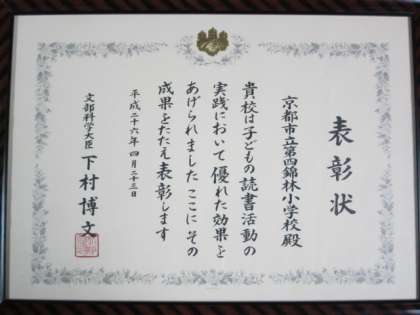 表彰状
京都市立第四錦林小学校殿
貴校は子どもの読書活動の
実践において優れた効果を
あげられました ここにその
成果をたたえ表彰します
平成二十六年四月二十三日
文部科学大臣 下村博文